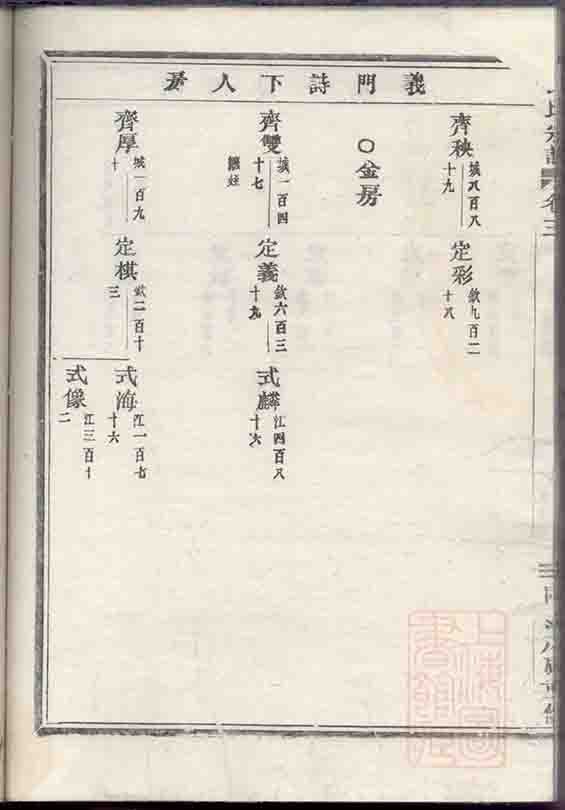 義門詩下人房
齊秧
城八百八
十九
定彩
敘九百二
十八
○金房
齊雙
城一百四
十七
繼姪
定義
敘六百三
十九
式麟
江四百八
十六
齊厚
城一百九
十
定棋
敘二百十
三
式海
江一百七
十六
式像
江三百十
二
氏宗譜
卷三
上海圖
書館藏